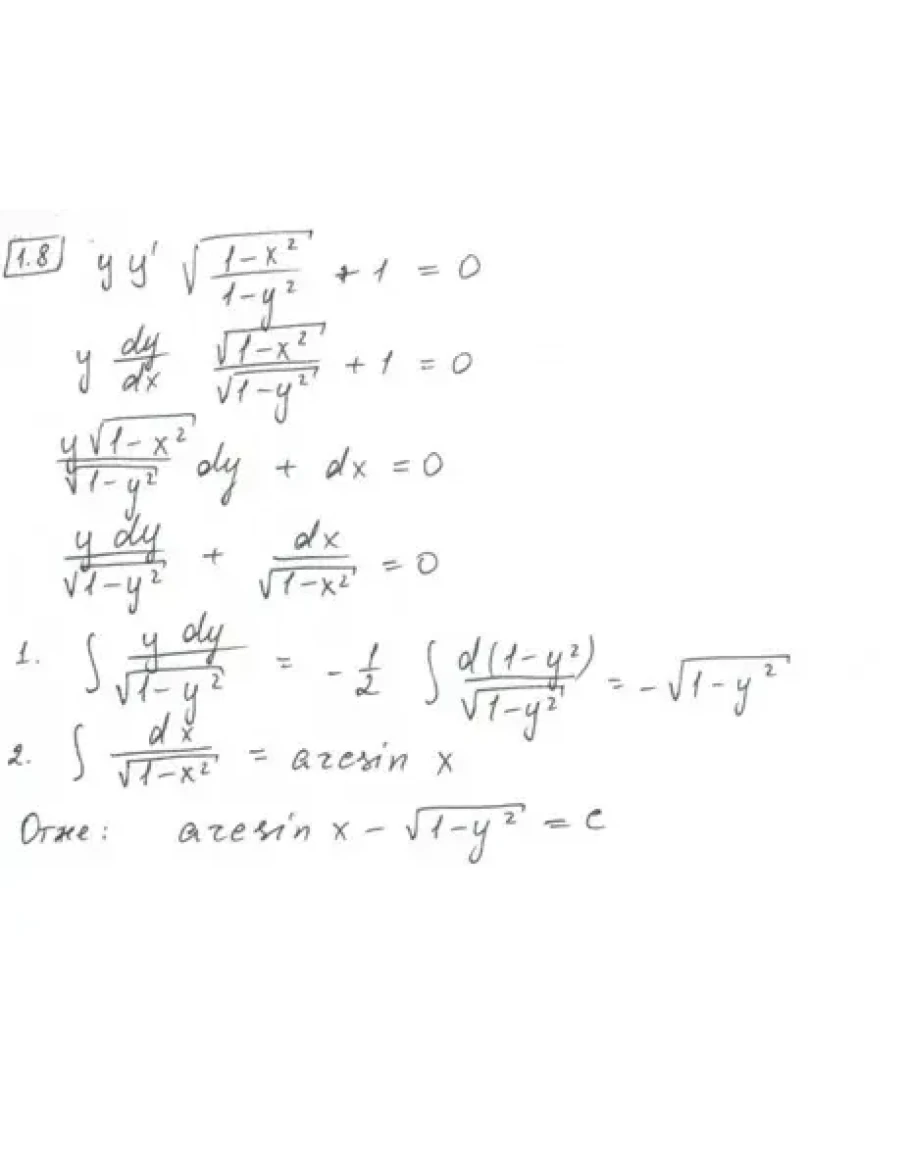 1.8 y y' √((1-x²)/(1-y²)) + 1 = 0
y dy/dx √(1-x²)/√(1-y²) + 1 = 0
y√(1-x²)/√(1-y²) dy + dx = 0
y dy/√(1-y²) + dx/√(1-x²) = 0
1. ∫ y dy/√(1-y²) = -1/2 ∫ d(1-y²)/√(1-y²) = -√(1-y²)
2. ∫ dx/√(1-x²) = arcsin x
Отже: arcsin x - √(1-y²) = c